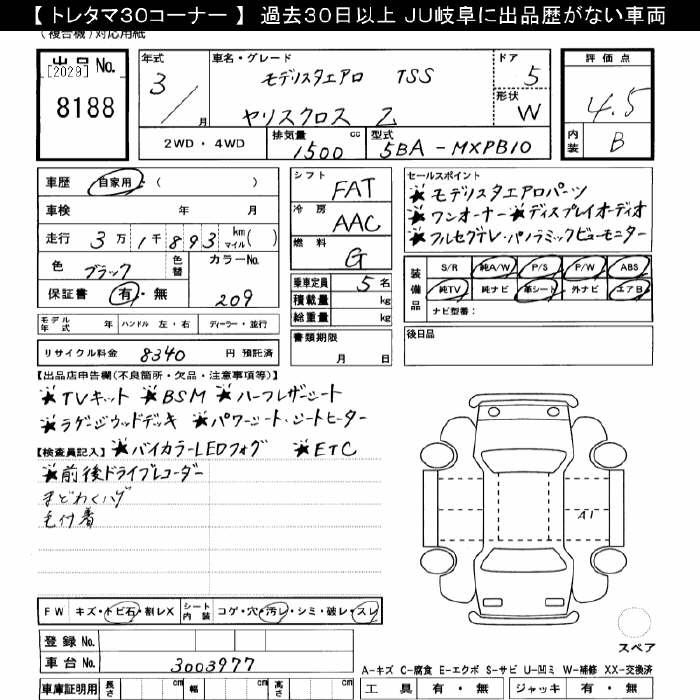 【 トレタマ30コーナー 】 過去30日以上 JU岐阜に出品歴がない車両
(複合機)対応用紙
出品 No.
[2029]
8188
年式
3
月
車名・グレード
モデリスタエアロ TSS
ヤリスクロス Z
ドア
5
形状
W
評価点
4.5
内装
B
2WD・4WD
排気量
1500
cc
型式
5BA - MXPB10
車歴
自家用・( )
車検 年 月
走行 3万 1千 893 km マイル( )
色 ブラック
色替
カラーNo.
209
保証書 有・無
モデル年式 年 ハンドル 左・右 ディーラー・並行
リサイクル料金 8340 円 預託済
シフト FAT
冷房 AAC
燃料 G
乗車定員 5 名
積載量 kg
総重量 kg
書類期限
月 日
セールスポイント
★モデリスタエアロパーツ
★ワンオーナー ★ディスプレイオーディオ
★フルセグTV・パノラミックビューモニター
装備品
S/R 純A/W P/S P/W ABS
純TV 純ナビ 革シート 外ナビ エアB
ナビ型番:
後日品
【出品店申告欄(不良箇所・欠品・注意事項等)】
★TVキット ★BSM ★ハーフレザーシート
★ラゲージウッドデッキ ★パワーシート・シートヒーター
【検査員記入】 ★バイカラーLEDフォグ ★ETC
★前後ドライブレコーダー
まどわくハゲ
毛付着
A1
FW キズ・トビ石・割レX シート内装 コゲ・穴・汚レ・シミ・破レ・スレ
登録 No.
車台 No. 3003977
車庫証明用 長さ cm 幅 cm 高さ cm
スペア
A-キズ C-腐食 E-エクボ S-サビ U-凹ミ W-補修 XX-交換済
工具 有・無 ジャッキ 有・無